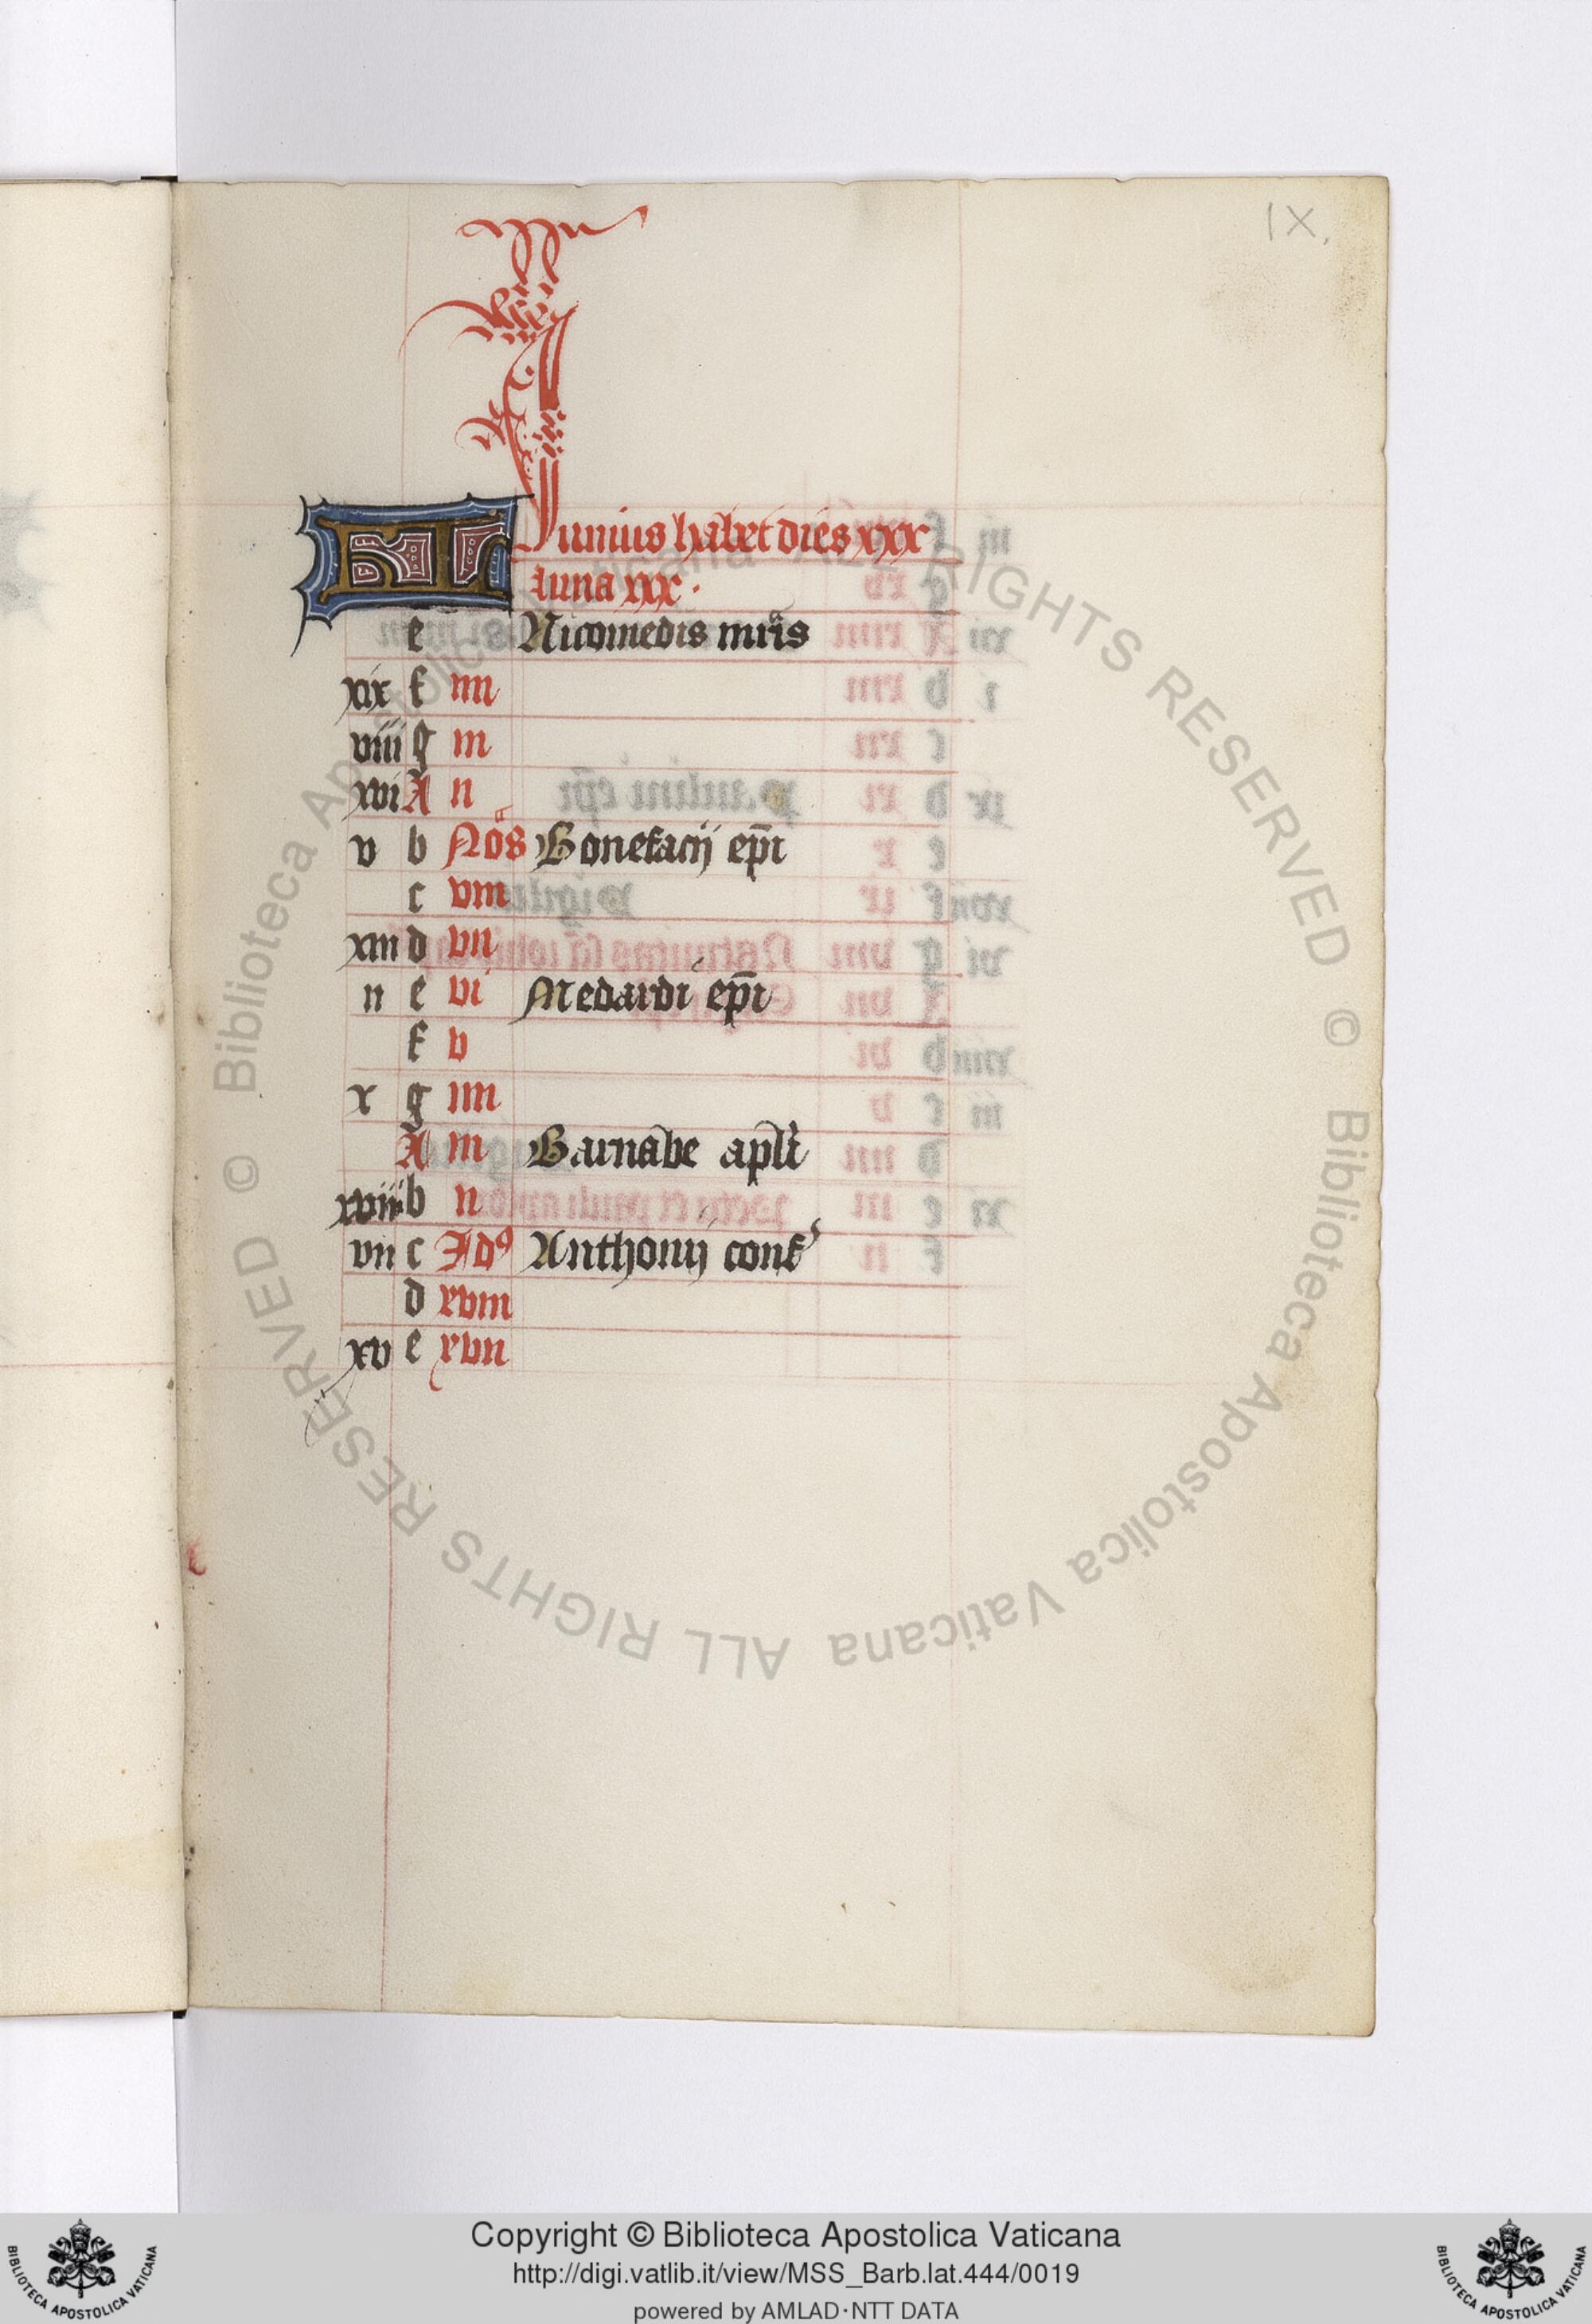 IX.
KL Iunius habet dies xxx
Luna xxx.
e Nicomedis mr̄is
xix f iiii
viiii g iii
xvi A ii
v b Nōs Bonefacij ep̄i
c viii
xiii d vii
ii e vi Medardi ep̄i
f v
x g iiii
A iii Barnabe apłi
xviii b ii
vii c Idꝰ Anthonij conf'
d xviii
xv e xvii
© Biblioteca Apostolica Vaticana ALL RIGHTS RESERVED © Biblioteca Apostolica Vaticana ALL RIGHTS RESERVED
Copyright © Biblioteca Apostolica Vaticana
http://digi.vatlib.it/view/MSS_Barb.lat.444/0019
powered by AMLAD·NTT DATA
BIBLIOTECA APOSTOLICA VATICANA
BIBLIOTECA APOSTOLICA VATICANA